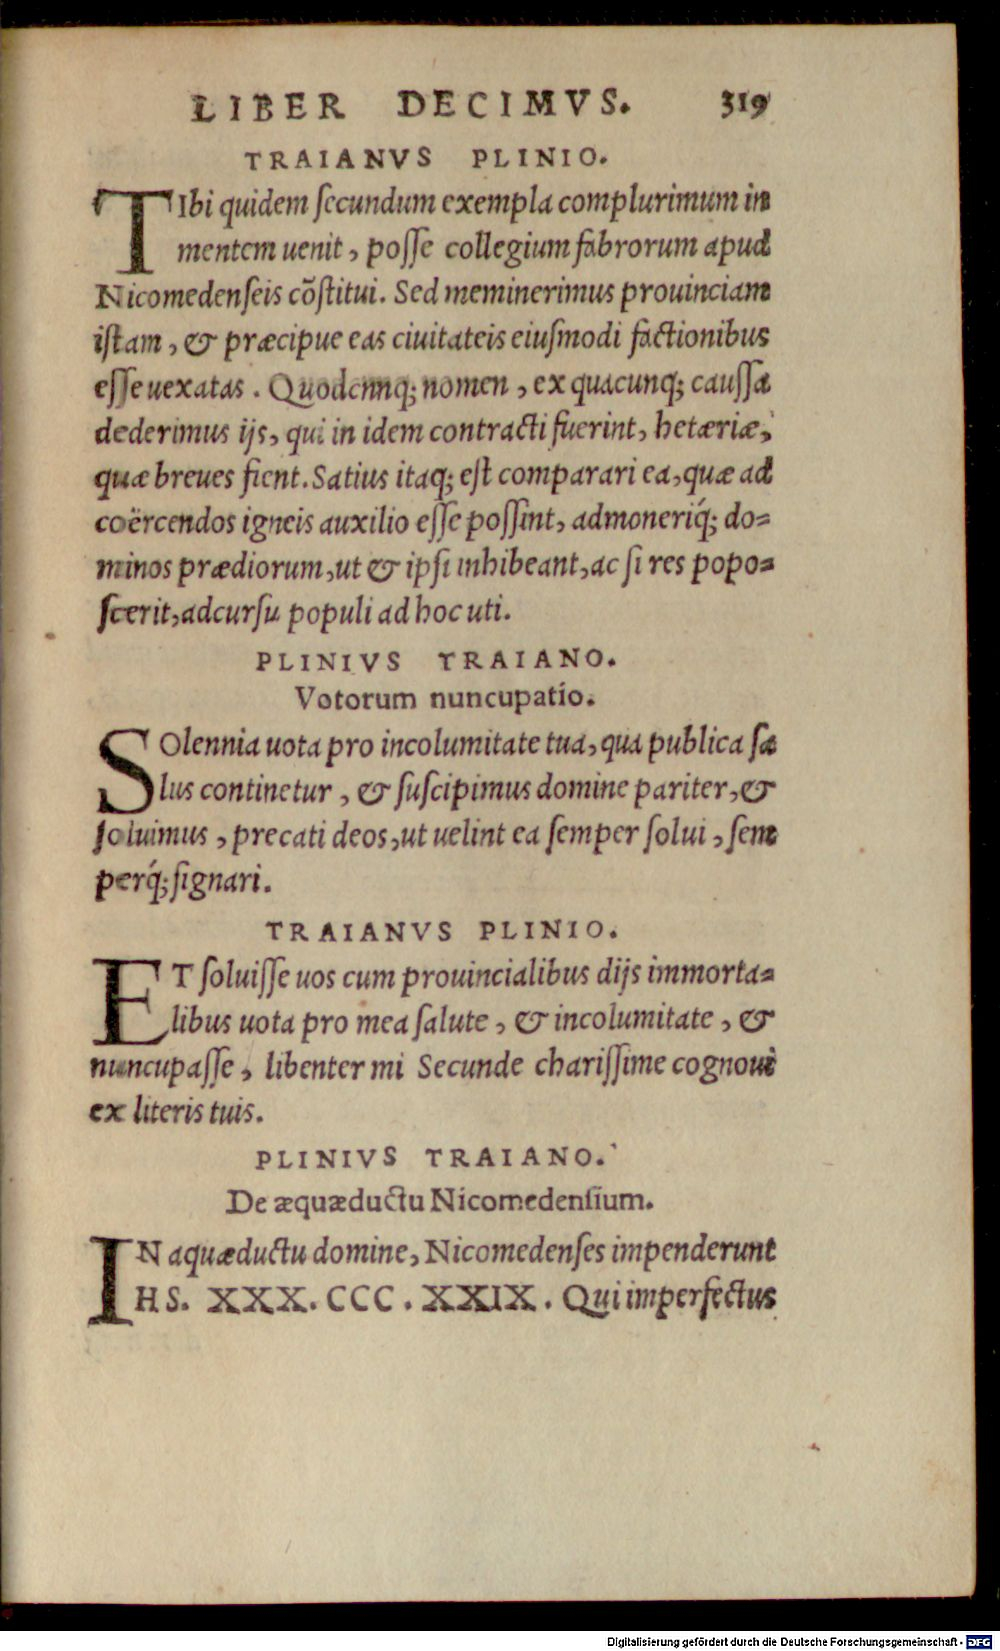 LIBER DECIMVS. 319
TRAIANVS PLINIO.
TIbi quidem ſecundum exempla complurimum in
mentem uenit, poſſe collegium fabrorum apud
Nicomedenſeis cõſtitui. Sed meminerimus prouinciam
iſtam, & præcipue eas ciuitateis eiuſmodi factionibus
eſſe uexatas. Quodcunq; nomen, ex quacunq; cauſſa
dederimus ijs, qui in idem contracti fuerint, hetæriæ,
quæ breues fient. Satius itaq; eſt comparari ea, quæ ad
coërcendos igneis auxilio eſſe poſſint, admoneriq́; do-
minos prædiorum, ut & ipſi inhibeant, ac ſi res popo-
ſcerit, adcurſu populi ad hoc uti.
PLINIVS TRAIANO.
Votorum nuncupatio.
SOlennia uota pro incolumitate tua, qua publica ſa
lus continetur, & ſuſcipimus domine pariter, &
ſoluimus, precati deos, ut uelint ea ſemper ſolui, ſem
perq́; ſignari.
TRAIANVS PLINIO.
ET ſoluiſſe uos cum prouincialibus dijs immorta-
libus uota pro mea ſalute, & incolumitate, &
nuncupaſſe, libenter mi Secunde chariſſime cognoui
ex literis tuis.
PLINIVS TRAIANO.
De æquæductu Nicomedenſium.
IN aquæductu domine, Nicomedenſes impenderunt
HS. XXX. CCC. XXIX. Qui imperfectus
Digitalisierung gefördert durch die Deutsche Forschungsgemeinschaft - DFG